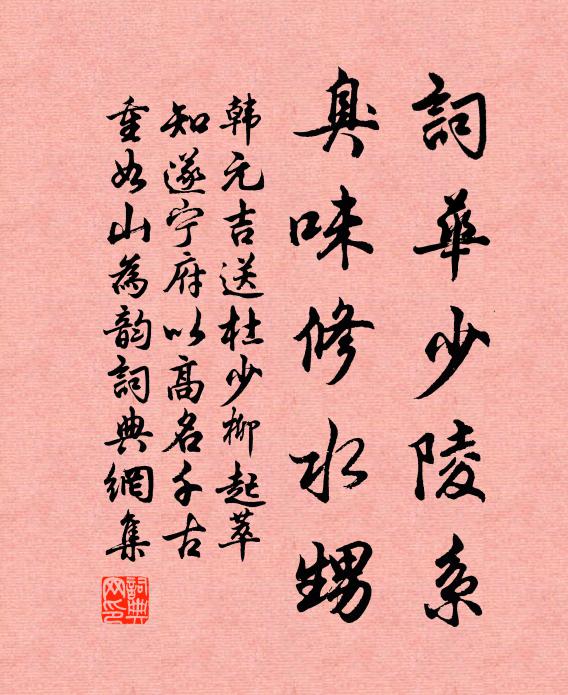 詞華少陵系
臭味修水甥
韩元吉送杜少柳起萃
知遂宁府以高名千古
重如山為韵詞典網集
詞典网印